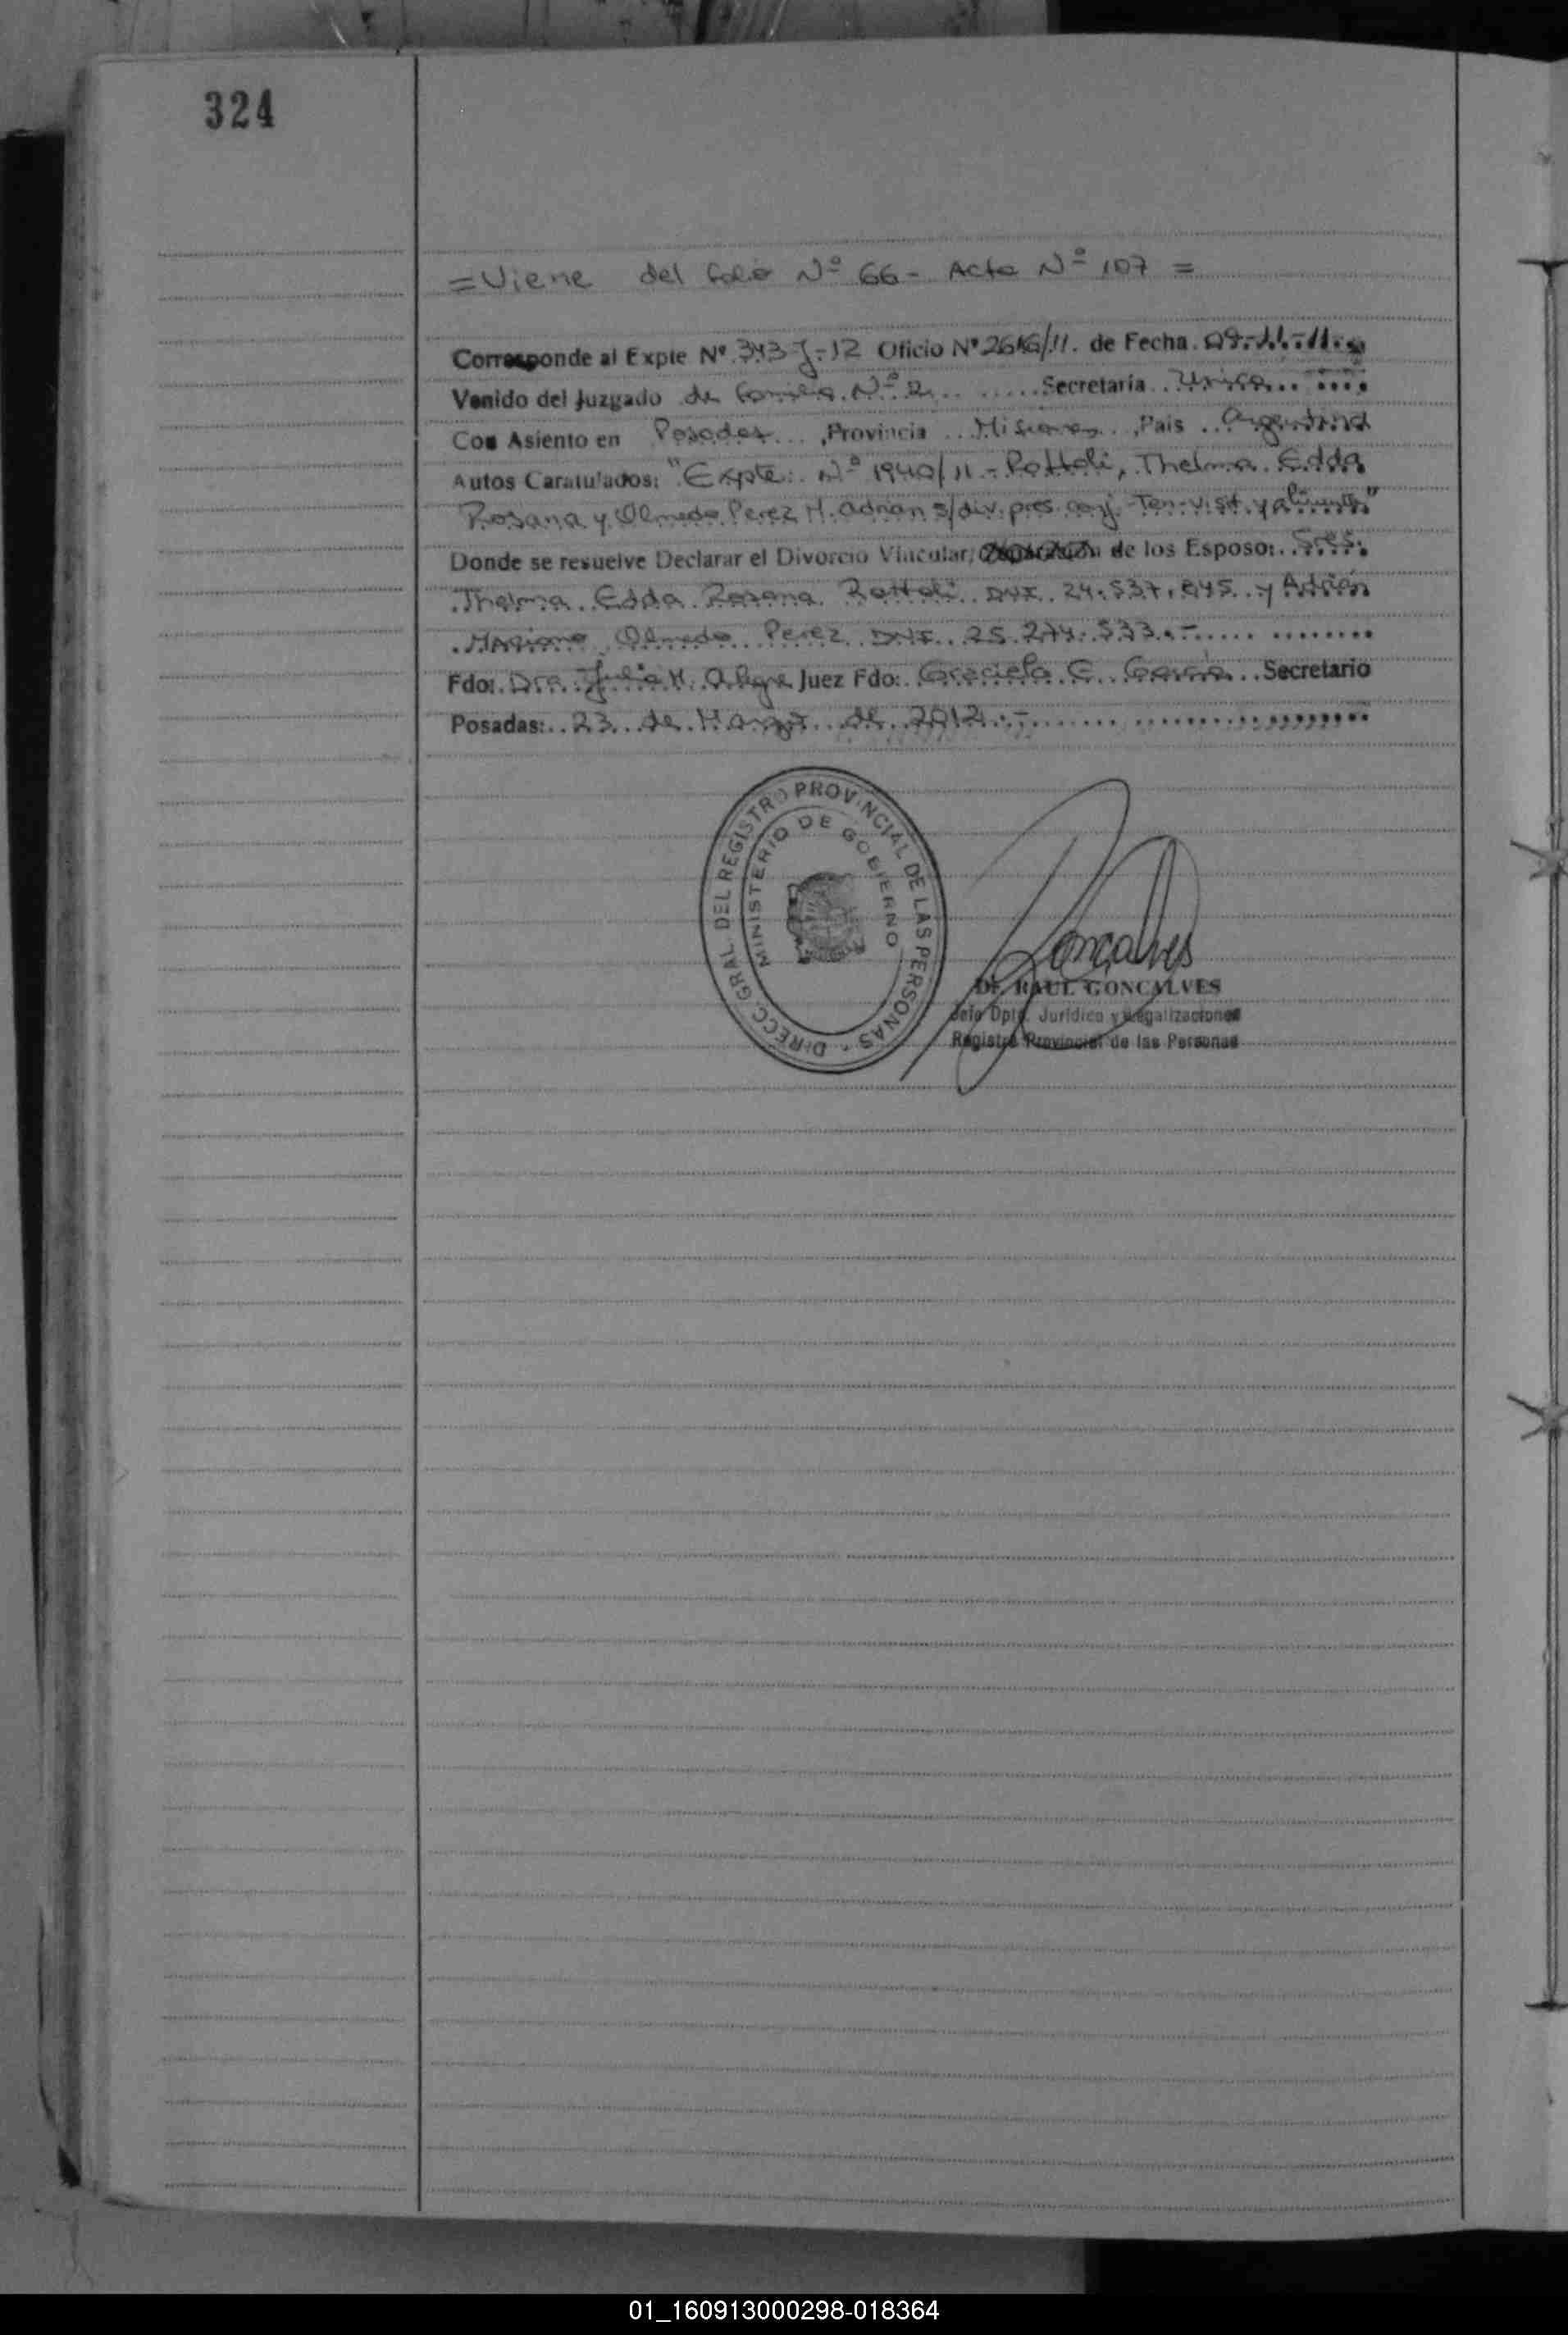 324
= Viene del folio Nº 66 - Acta Nº 107 =
Corresponde al Expte Nº 343 J-12 Oficio Nº /11. de Fecha. 09-11-11.
Venido del Juzgado de Familia Nº 2 Secretaría Unica
Con Asiento en Posadas ,Provincia Misiones ,Pais Argentina
Autos Caratulados: "Expte: Nº 1940/11 - Rottoli, Thelma Edda
Rosana y Olmedo Perez M. Adrian s/div. pres. conj. Ten. visit. y alimentos"
Donde se resuelve Declarar el Divorcio Vincular, de los Esposo: Sres.
Thelma Edda Rosana Rottoli DNI. 24.537.845 y Adrián
Mariano Olmedo Perez DNI. 25.274.533.-
Fdo: Dra. Julia H. Alegre Juez Fdo: Graciela E. García Secretario
Posadas: 23 de Marzo de 2012.-
DIRECC. GRAL. DEL REGISTRO PROVINCIAL DE LAS PERSONAS
MINISTERIO DE GOBIERNO
Goncalves
Dr. RAUL GONCALVES
Jefe Dpto. Jurídico y Legalizaciones
Registro Provincial de las Personas
01_160913000298-018364